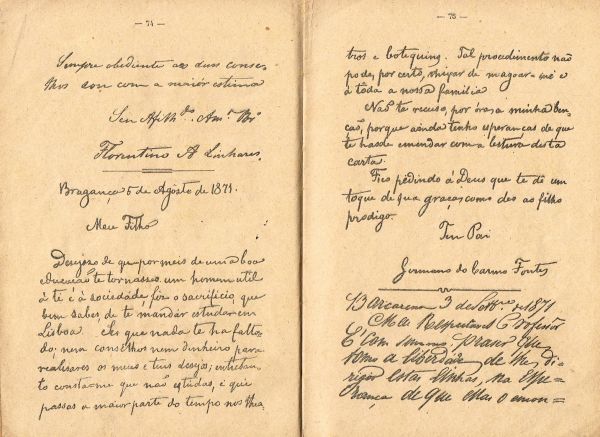 — 74 —
Sempre obediente aos seus conse-
lhos sou com a maiór estima
Seu Afilh.do Am.o
Florentino A Linhares.
Bragança 5 de Agosto de 1871.
Meu Filho
Desejozo de que por meio de uma boa
educação te tornasses um homem util
á ti é á sociedade, fiz o sacrificio, que
bem sabes, de te mandar estudar em
Lisboa. Sei que nada te ha falta-
do, nem conselhos nem dinheiro para
realisares os meus e teus desejos; entretan-
to consta-me que não estudas, e que
passas a maior parte do tempo nos thea
— 75 —
tros e botequins. Tal procedimento não
pode, por certo, deixar de magoar-me e
á tôda a nossa familia
Não te recuso, por óra, a minha ben-
ção, porque ainda tenho esperanças de que
te hasde emendar com a leitura desta
carta.
Fico pedindo á Deus que te dê um
toque de sua graça como deo ao filho
prodigo.
Teu Pai
Germano do Carmo Fontes
Barcarena 3 de Sett.ro de 1871
Meu Respeitavel Professor
É com summo prazer que
tomo a liberdade de lhe di=
rigir estas linhas, na espe=
rança de que mas o